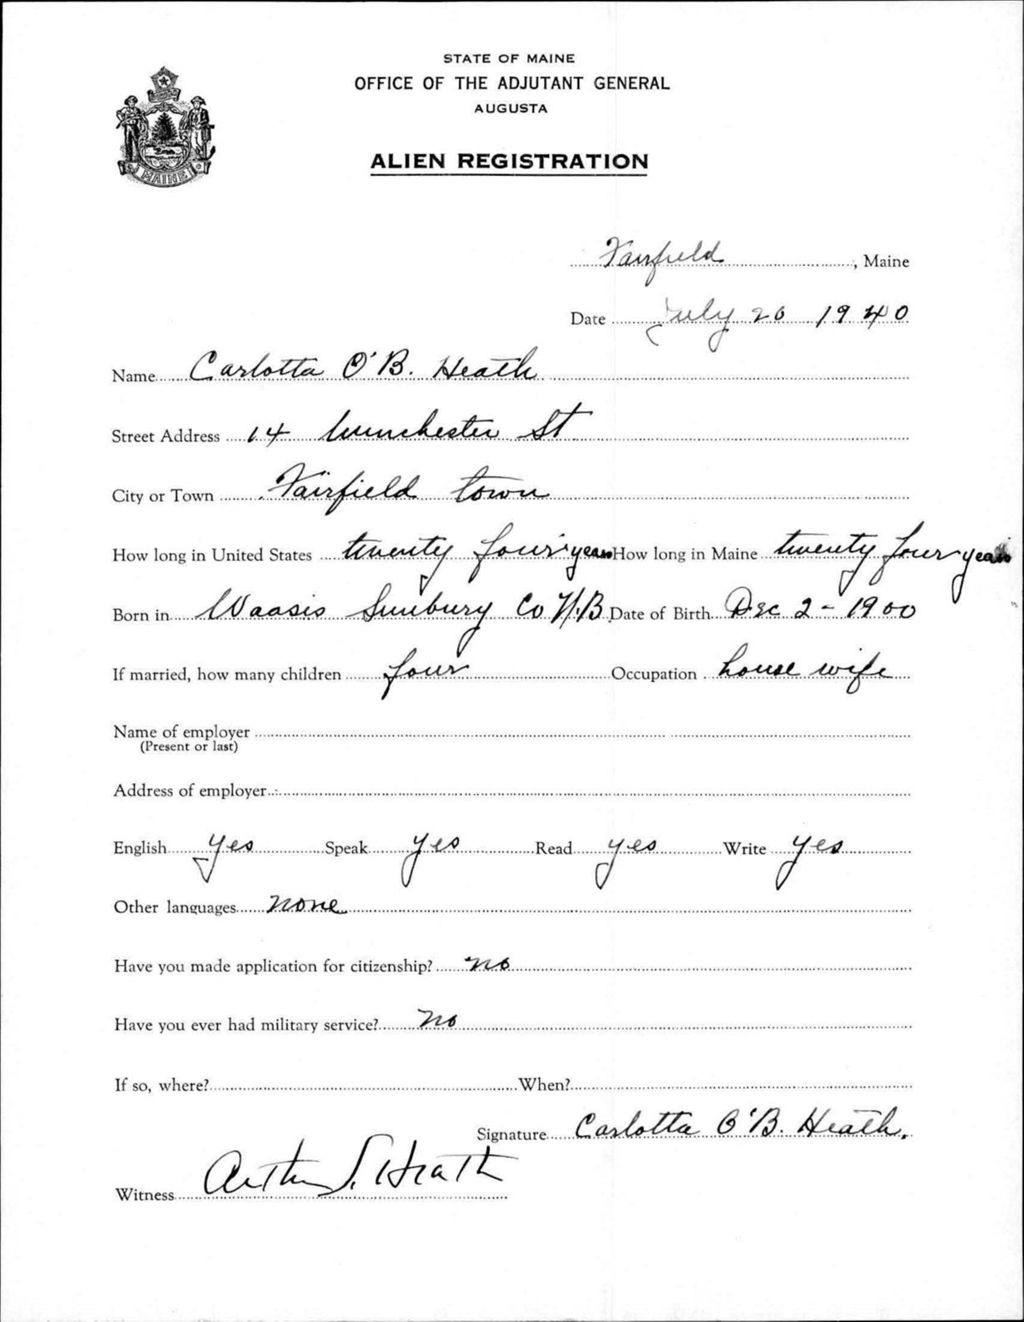 STATE OF MAINE
OFFICE OF THE ADJUTANT GENERAL
AUGUSTA
ALIEN REGISTRATION
MAINE
Fairfield, Maine
Date July 26 1940
Name Carlotta O'B. Heath
Street Address 14 Winchester St
City or Town Fairfield town
How long in United States twenty four years How long in Maine twenty four years
Born in Waasis Sunbury Co N.B Date of Birth Dec 2 - 1900
If married, how many children four Occupation house wife
Name of employer
(Present or last)
Address of employer
English yes Speak yes Read yes Write yes
Other languages none
Have you made application for citizenship? no
Have you ever had military service? no
If so, where? When?
Signature Carlotta O'B. Heath.
Witness Arthur S. Heath